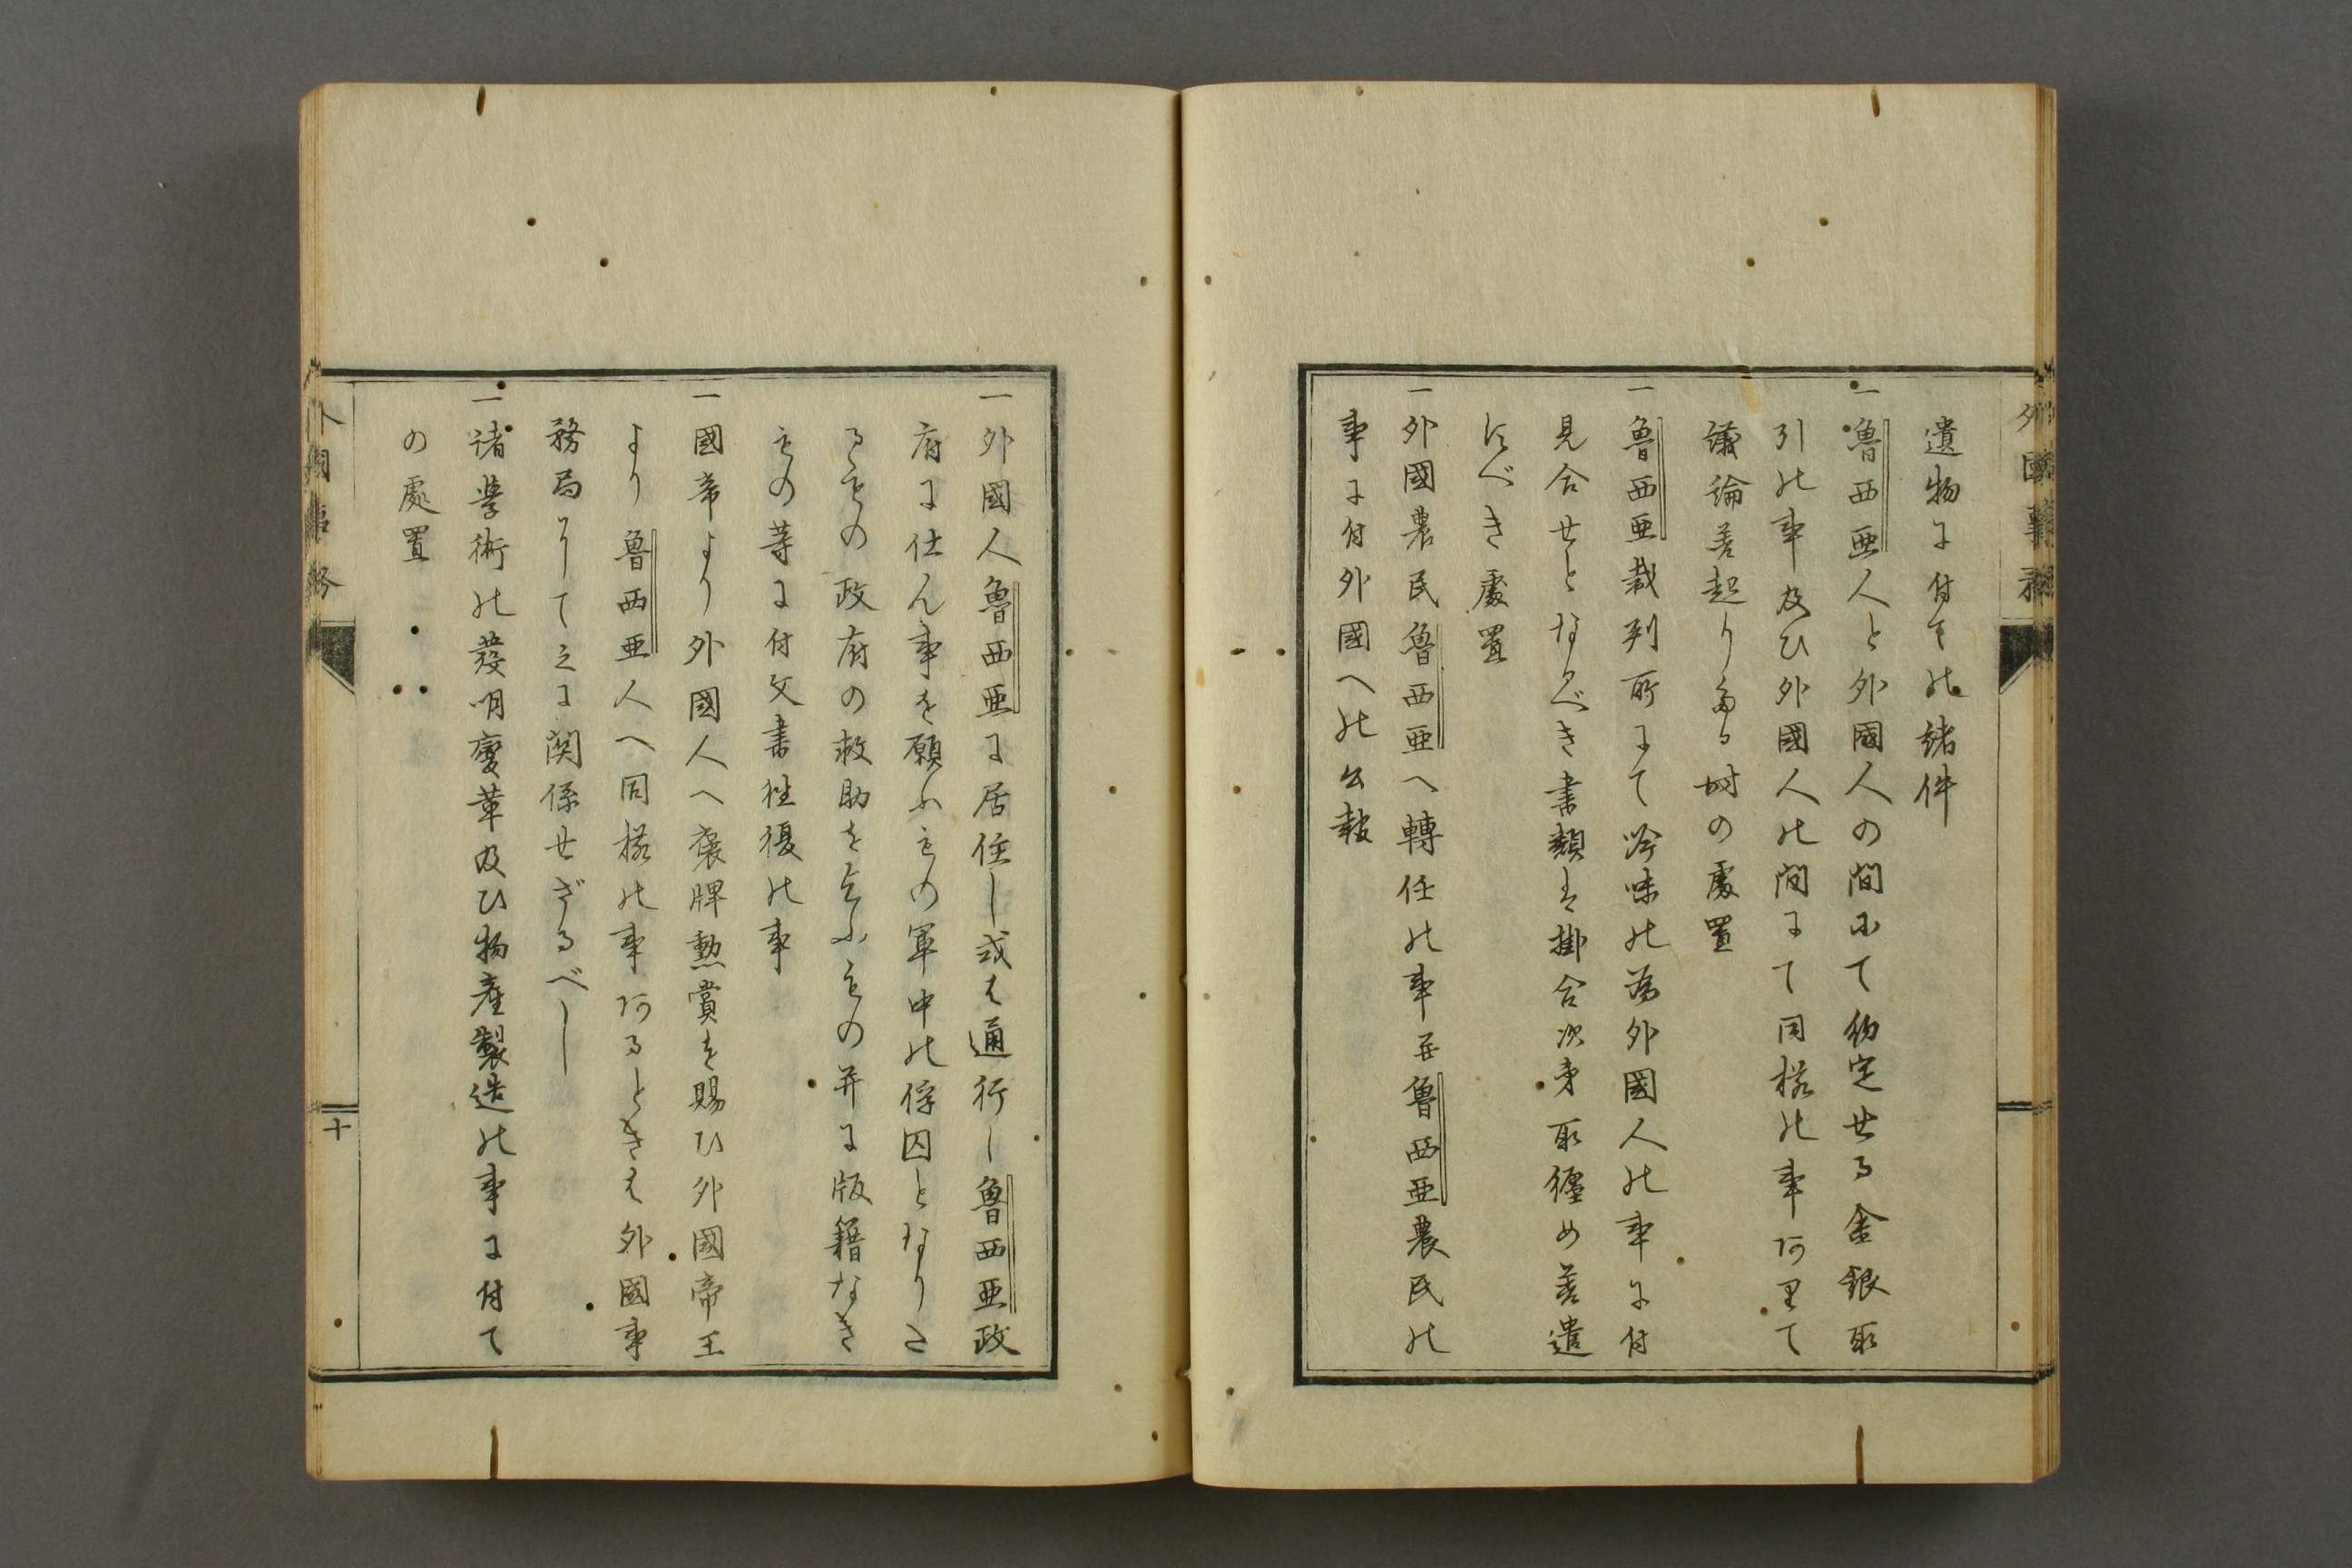 外國事務
遺物に付ての諸件
一魯西亜人と外國人の間にて約定せる金銀取
引の事及ひ外國人の間にて同様の事ありて
議論差起りたる時の處置
一魯西亜裁判所にて吟味の為外國人の事に付
見合せとなるべき書類を掛合次第取纏め差遣
すべき處置
一外國農民魯西亜へ轉任の事并魯西亜農民の
事に付外國への公報
一外國人魯西亜に居住し或は通行し魯西亜政
府に仕ん事を願ふもの軍中の俘囚となりさ
るもの政府の救助を乞ふもの并に版籍なき
もの等に付文書往復の事
一國帝より外國人へ褒牌勲賞を賜ひ外國帝王
より魯西亜人へ同様の事あるときは外國事
務局にて之に関係せざるべし
一諸學術の發明變革及ひ物産製造の事に付て
の處置
外國事務
十